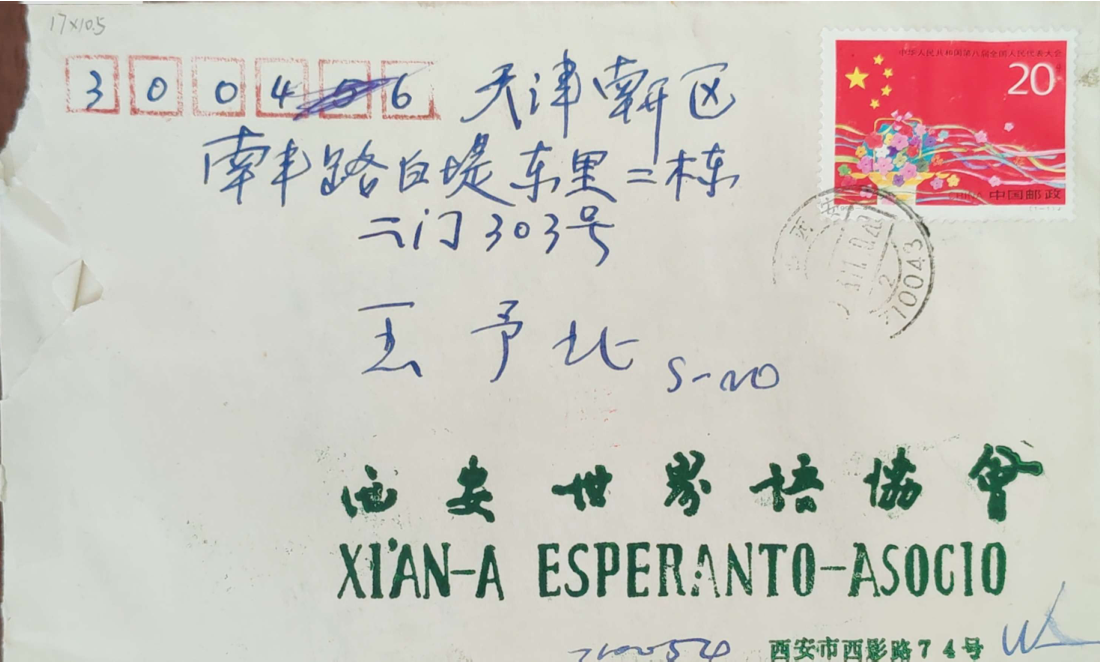 17×10.5
3004 6
天津南开区
南丰路白堤东里二栋
二门303号
王予北 S-ro
中华人民共和国第八届全国人民代表大会
20
中国邮政
西安
710043
西安世界语协會
XI'AN-A ESPERANTO-ASOCIO
710054 西安市西影路74号